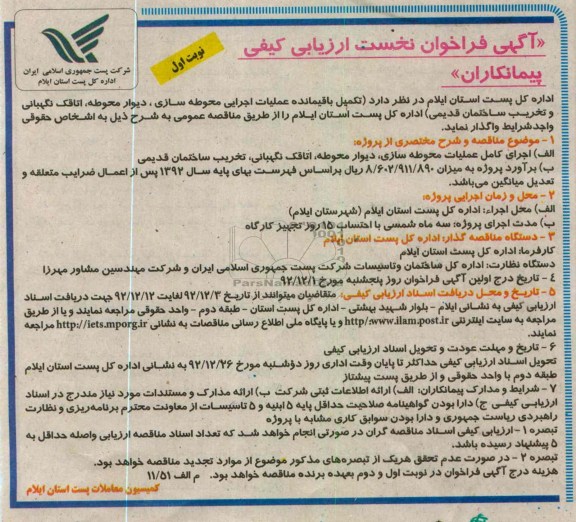 شرکت پست جمهوری اسلامی ایران
اداره کل پست استان ایلام
نوبت اول
«آگهی فراخوان نخست ارزیابی کیفی
پیمانکاران»
اداره کل پست استان ایلام در نظر دارد (تکمیل باقیمانده عملیات اجرایی محوطه سازی ، دیوار محوطه، اتاقک نگهبانی
و تخریب ساختمان قدیمی) اداره کل پست استان ایلام را از طریق مناقصه عمومی به شرح ذیل به اشخاص حقوقی
واجدشرایط واگذار نماید.
۱ - موضوع مناقصه و شرح مختصری از پروژه:
الف) اجرای کامل عملیات محوطه سازی، دیوار محوطه، اتاقک نگهبانی، تخریب ساختمان قدیمی
ب) برآورد پروژه به میزان ۸/۶۰۲/۹۱۱/۸۹۰ ریال براساس فهرست بهای پایه سال ۱۳۹۲ پس از اعمال ضرایب متعلقه و
تعدیل میانگین می‌باشد.
۲ - محل و زمان اجرایی پروژه:
الف) محل اجراء: اداره کل پست استان ایلام (شهرستان ایلام)
ب) مدت اجرای پروژه: سه ماه شمسی با احتساب ۱۵ روز تجهیز کارگاه
۳ - دستگاه مناقصه گذار: اداره کل پست استان ایلام
کارفرما: اداره کل پست استان ایلام
دستگاه نظارت: اداره کل ساختمان وتاسیسات شرکت پست جمهوری اسلامی ایران و شرکت مهندسین مشاور مهرزا
۴ - تاریخ درج اولین آگهی فراخوان روز پنجشنبه مورخ ۹۲/۱۲/۱
۵ - تاریخ و محل دریافت اسناد ارزیابی کیفی: متقاضیان میتوانند از تاریخ ۹۲/۱۲/۳ لغایت ۹۲/۱۲/۱۲ جهت دریافت اسناد
ارزیابی کیفی به نشانی ایلام - بلوار شهید بهشتی - اداره کل پست استان - طبقه دوم - واحد حقوقی مراجعه نمایند و یا از طریق
مراجعه به سایت اینترنتی http:/www.ilam.post.ir و یا پایگاه ملی اطلاع رسانی مناقصات به نشانی http://iets.mporg.ir مراجعه
نمایند.
۶ - تاریخ و مهلت عودت و تحویل اسناد ارزیابی کیفی
تحویل اسناد ارزیابی کیفی حداکثر تا پایان وقت اداری روز دوشنبه مورخ ۹۲/۱۲/۲۶ به نشانی اداره کل پست استان ایلام
طبقه دوم با واحد حقوقی و از طریق پست پیشتاز
۷ - شرایط و مدارک پیمانکاران: الف) ارائه اطلاعات ثبتی شرکت ب) ارائه مدارک و مستندات مورد نیاز مندرج در اسناد
ارزیابی کیفی ج) دارا بودن گواهینامه صلاحیت حداقل پایه ۵ ابنیه و ۵ تاسیسات از معاونت محترم برنامه‌ریزی و نظارت
راهبردی ریاست جمهوری و دارا بودن سوابق کاری مشابه با پروژه
تبصره ۱ - ارزیابی کیفی اسناد مناقصه گران در صورتی انجام خواهد شد که تعداد اسناد مناقصه ارزیابی واصله حداقل به
۵ پیشنهاد رسیده باشد.
تبصره ۲ - در صورت عدم تحقق هریک از تبصره‌های مذکور موضوع از موارد تجدید مناقصه خواهد بود.
هزینه درج آگهی فراخوان در نوبت اول و دوم بعهده برنده مناقصه خواهد بود. م الف ۱۱/۵۱
کمیسیون معاملات پست استان ایلام